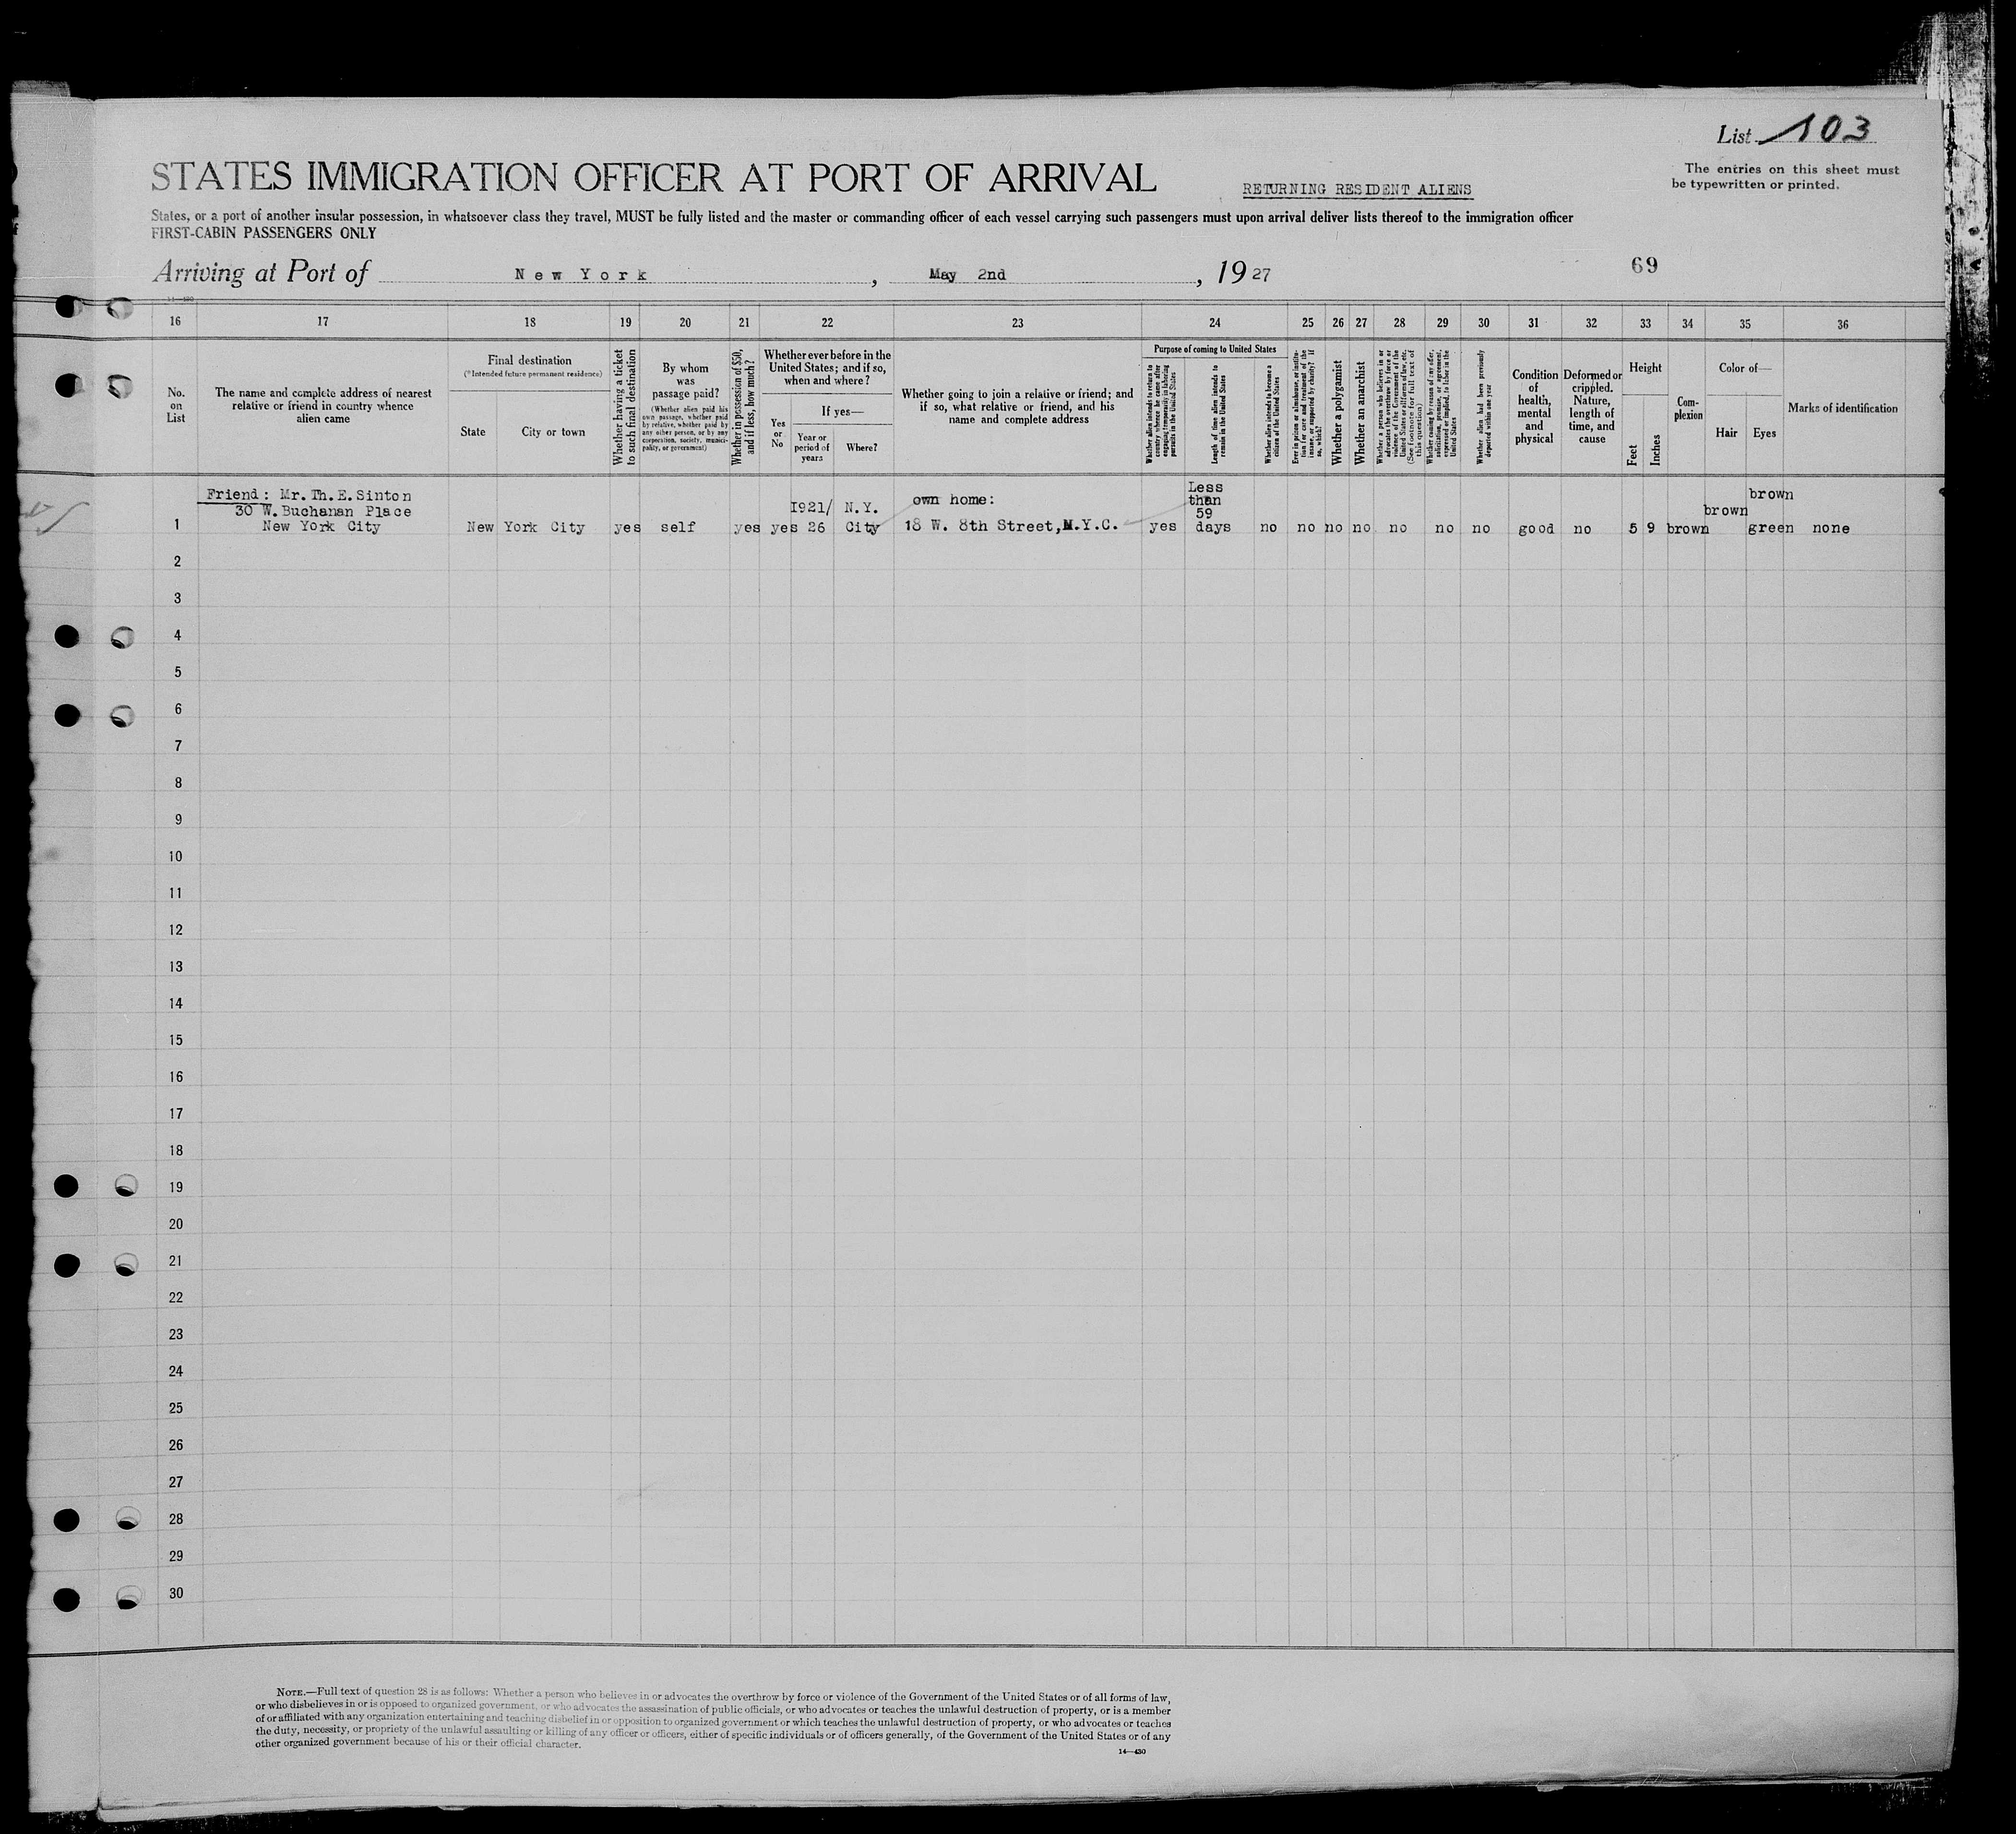 List 103
The entries on this sheet must
be typewritten or printed.
STATES IMMIGRATION OFFICER AT PORT OF ARRIVAL
RETURNING RESIDENT ALIENS
States, or a port of another insular possession, in whatsoever class they travel, MUST be fully listed and the master or commanding officer of each vessel carrying such passengers must upon arrival deliver lists thereof to the immigration officer
FIRST-CABIN PASSENGERS ONLY
Arriving at Port of New York, May 2nd, 1927
69
14-430
16 17 18 19 20 21 22 23 24 25 26 27 28 29 30 31 32 33 34 35 36
No.
on
List
The name and complete address of nearest
relative or friend in country whence
alien came
Final destination
(*Intended future permanent residence)
State
City or town
Whether having a ticket
to such final destination
By whom
was
passage paid?
(Whether alien paid his
own passage, whether paid
by relative, whether paid by
any other person, or by any
corporation, society, munici-
pality, or government)
Whether in possession of $50,
and if less, how much?
Whether ever before in the
United States; and if so,
when and where?
Yes
or
No
If yes—
Year or
period of
years
Where?
Whether going to join a relative or friend; and
if so, what relative or friend, and his
name and complete address
Purpose of coming to United States
Whether alien intends to return to
country whence he came after
engaging temporarily in laboring
pursuits in the United States
Length of time alien intends to
remain in the United States
Whether alien intends to become a
citizen of the United States
Ever in prison or almshouse, or institu-
tion for care and treatment of the
insane, or supported by charity? If
so, which?
Whether a polygamist
Whether an anarchist
Whether a person who believes in or
advocates the overthrow by force or
violence of the Government of the
United States or all forms of law, etc.
(See footnote for full text of
this question)
Whether coming by reason of any offer,
solicitation, promise, or agreement,
expressed or implied, to labor in the
United States
Whether alien had been previously
deported within one year
Condition
of
health,
mental
and
physical
Deformed or
crippled.
Nature,
length of
time, and
cause
Height
Feet
Inches
Com-
plexion
Color of—
Hair
Eyes
Marks of identification
Friend: Mr. Th. E. Sinton
30 W. Buchanan Place
New York City
1 New York City yes self yes yes 1921/26 N.Y. City own home: 18 W. 8th Street, N.Y.C. yes Less than 59 days no no no no no no no good no 5 9 brown brown brown green none
2
3
4
5
6
7
8
9
10
11
12
13
14
15
16
17
18
19
20
21
22
23
24
25
26
27
28
29
30
NOTE.—Full text of question 28 is as follows: Whether a person who believes in or advocates the overthrow by force or violence of the Government of the United States or of all forms of law,
or who disbelieves in or is opposed to organized government, or who advocates the assassination of public officials, or who advocates or teaches the unlawful destruction of property, or is a member
of or affiliated with any organization entertaining and teaching disbelief in or opposition to organized government or which teaches the unlawful destruction of property, or who advocates or teaches
the duty, necessity, or propriety of the unlawful assaulting or killing of any officer or officers, either of specific individuals or of officers generally, of the Government of the United States or of any
other organized government because of his or their official character.
14—430